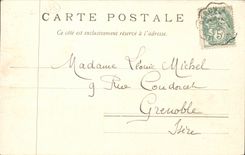 CARTE POSTALE
Ce côté est exclusivement réservé à l'adresse.
Madame Léonie Michel
9 Rue Condorcet
Grenoble
Isère